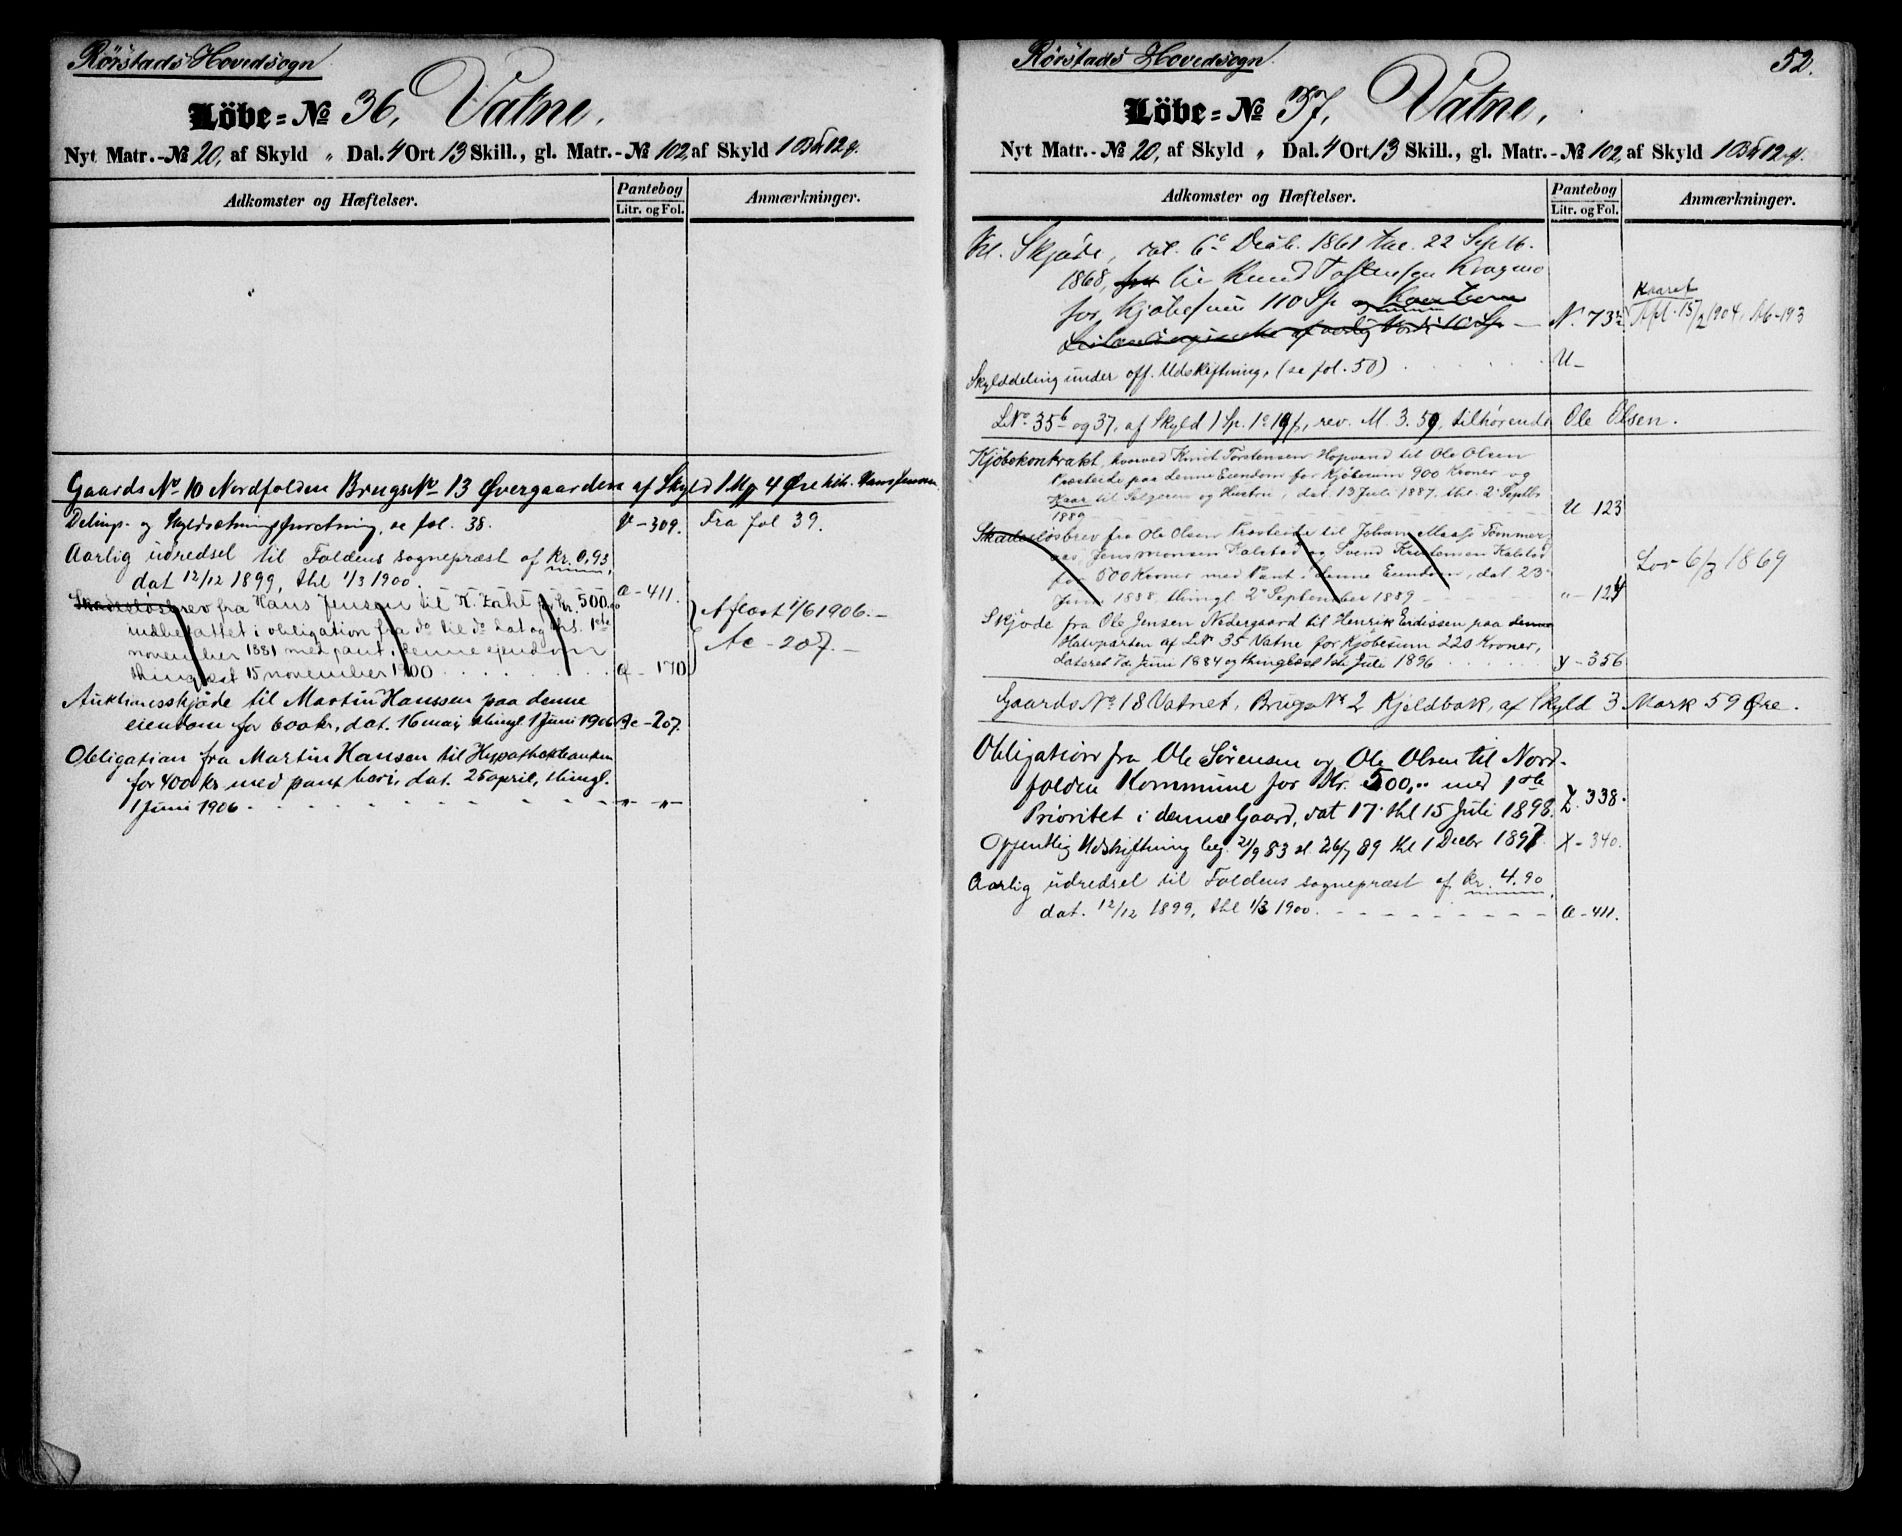 Rörstads Hovedsogn
Löbe=No 36, Vatne.
Nyt Matr.-No 20, af Skyld " Dal. 4 Ort 13 Skill., gl. Matr.-No 102, af Skyld 1 12
Adkomster og Hæftelser.
Pantebog
Litr. og Fol.
Anmærkninger.
Gaards No 10 Nordfolden Brugs No 13 Øvergaarden af Skyld 1 Mk 4 Øre tilh. Hans Jensen
Delings- og Skyldsætningsforretning, se fol. 38. V - 309. Fra fol 39.
Aarlig udredsel til Foldens sognepræst af kr. 0,93,
dat 12/12 1899, thl 1/3 1900. a - 411.
Skadesløsbrev fra Hans Jensen til K. Zahl for kr. 500.00
indbefattet i obligation fra do til do dat og 1ste
november 1881 med pant i denne ejendom
thinglæst 15 november 1900 a - 170
Aflæst 1/6 1906. -
Ac - 207. -
Auktionsskjøde til Martin Hanssen paa denne
eiendom for 600 kr., dat. 16 mai, thingl. 1 Juni 1906 Ac - 207.
Obligation fra Martin Hansen til Hypothekbanken
for 400 kr med pant heri, dat. 25 april, thingl.
1 Juni 1906 - " - " -
Rörstads Hovedsogn.
52.
Löbe=No 37, Vatne,
Nyt Matr.-No 20, af Skyld " Dal. 4 Ort 13 Skill., gl. Matr.-No 102, af Skyld 1 12
Adkomster og Hæftelser.
Pantebog
Litr. og Fol.
Anmærkninger.
Skjøde, dat. 6 1861 22 Septb.
1868, til Knud
for Kjøbesum 110 Sp N. 73
Kaaret
Afl. 15/2 1904, Ab-193
Skylddeling under off. Udskiftning, (se fol. 50) U -
LNo 35b og 37, af Skyld 1 Sp. rev. M. 3.59, tilhørende Ole Olsen.
Kjøbekontrakt, hvorved Knut Torstensen Hopvand til Ole Olsen
paa denne Eiendom for Kjøbesum 900 Kroner og
Kaar til Sælgeren og Hustru, dat. 13 Juli 1887, thl. 2 Septb
1889 U 123
Skadesløsbrev fra Ole Olsen til Johan
Kalstad og Svend Kalstad
for 500 Kroner med Pant i denne Eiendom, dat 23
Juni 1888, thingl. 2 September 1889 " - 124
Lov 6/3 1869
Skjøde fra Ole Jensen Nedergaard til Henrik paa denne
Halvparten af LNo 35 Vatne for Kjøbesum 220 Kroner,
dateret 7de Juni 1884 og thinglæst 1ste Juli 1896 y - 356
Gaards No 18 Vatnet, Brugs No 2 Kjeldbak, af Skyld 3 Mark 59 Øre.
Obligation fra Ole Sørensen og Ole Olsen til Nord-
folden Kommune for Kr. 500,00 med 1ste
Prioritet i denne Gaard, dat 17. thl 15 Juli 1898. Z. 338.
Offentlig Udskiftning beg. 21/9 83 sl. 26/7 89 thl 1 Decbr 1897. X - 340.
Aarlig udredsel til Foldens sognepræst af kr. 4.90
dat. 12/12 1899, thl 1/3 1900. a - 411.